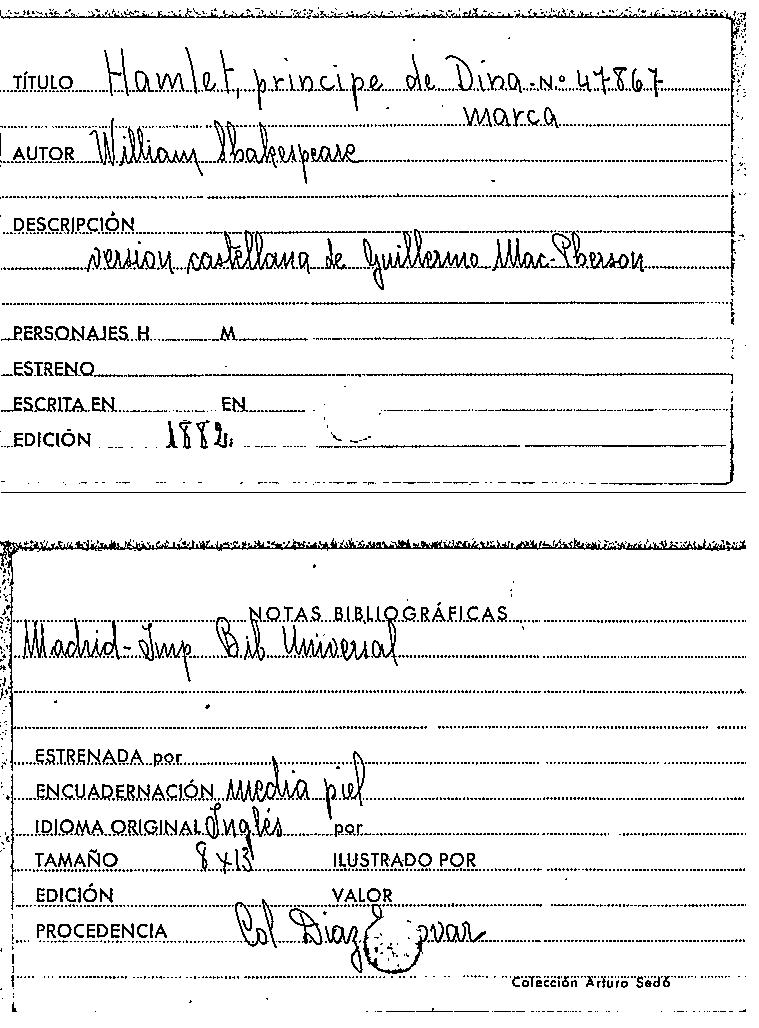 TÍTULO Hamlet, principe de Dina-N.º 47867
marca
AUTOR William Shakespeare
DESCRIPCIÓN
version castellana de Guillermo Mac-Pherson
PERSONAJES H M
ESTRENO
ESCRITA EN EN
EDICIÓN 1882.
NOTAS BIBLIOGRÁFICAS
Madrid-Imp Bib Universal
ESTRENADA por
ENCUADERNACIÓN media piel
IDIOMA ORIGINAL Inglés por
TAMAÑO 8 x 13 ILUSTRADO POR
EDICIÓN VALOR
PROCEDENCIA Col Diaz
Colección Arturo Sedó